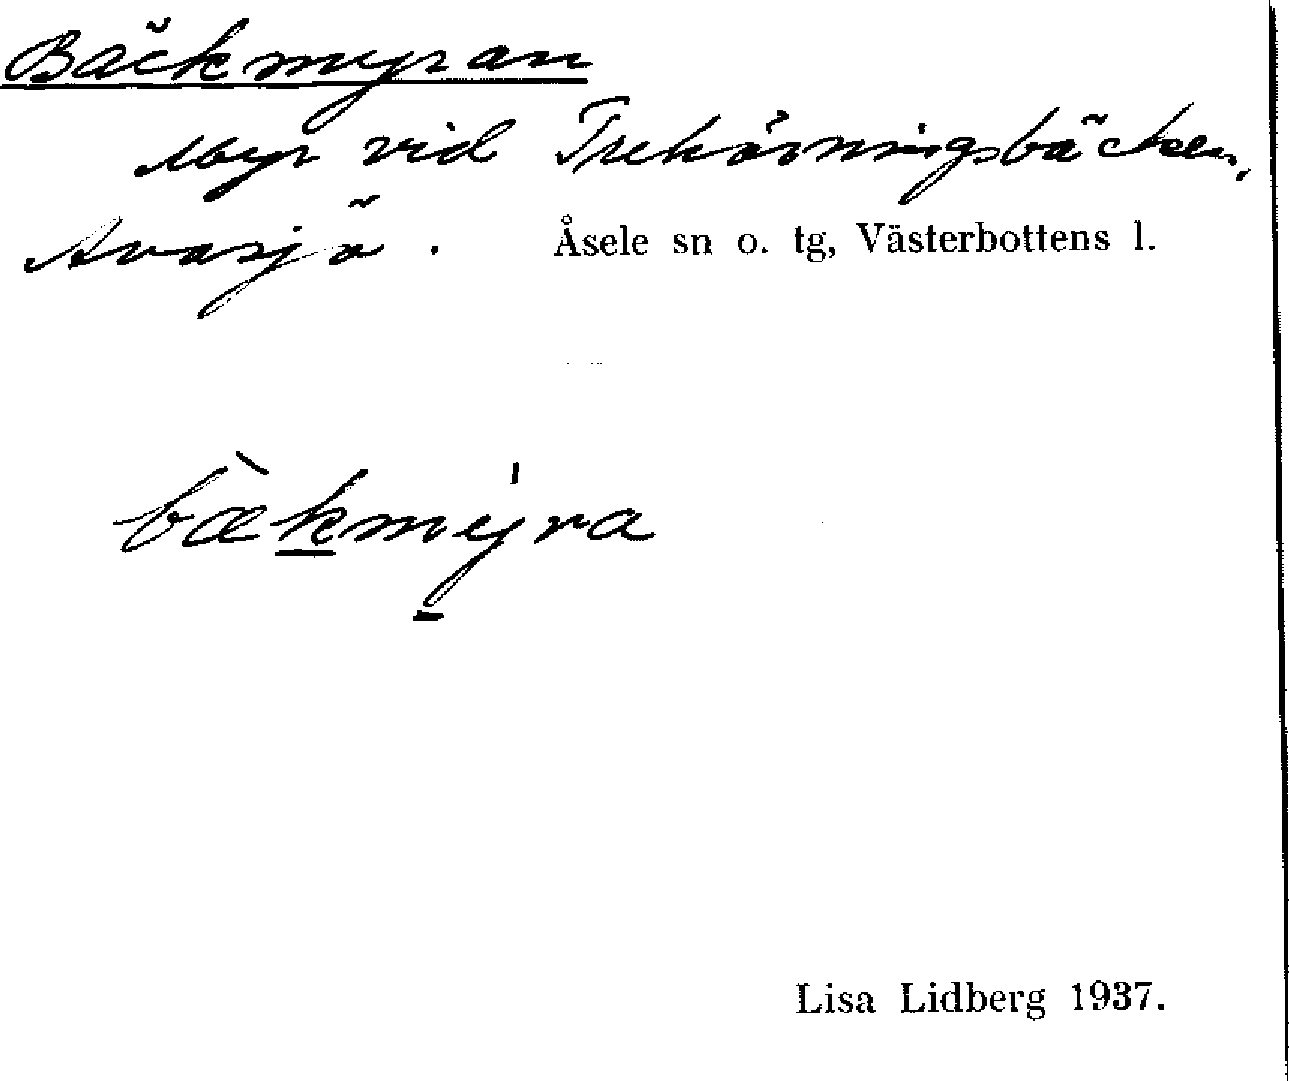 Bäckmyran
Myr vid Trehörningsbäcken,
Avasjö. Åsele sn o. tg, Västerbottens l.
bæ̀kmýra
Lisa Lidberg 1937.